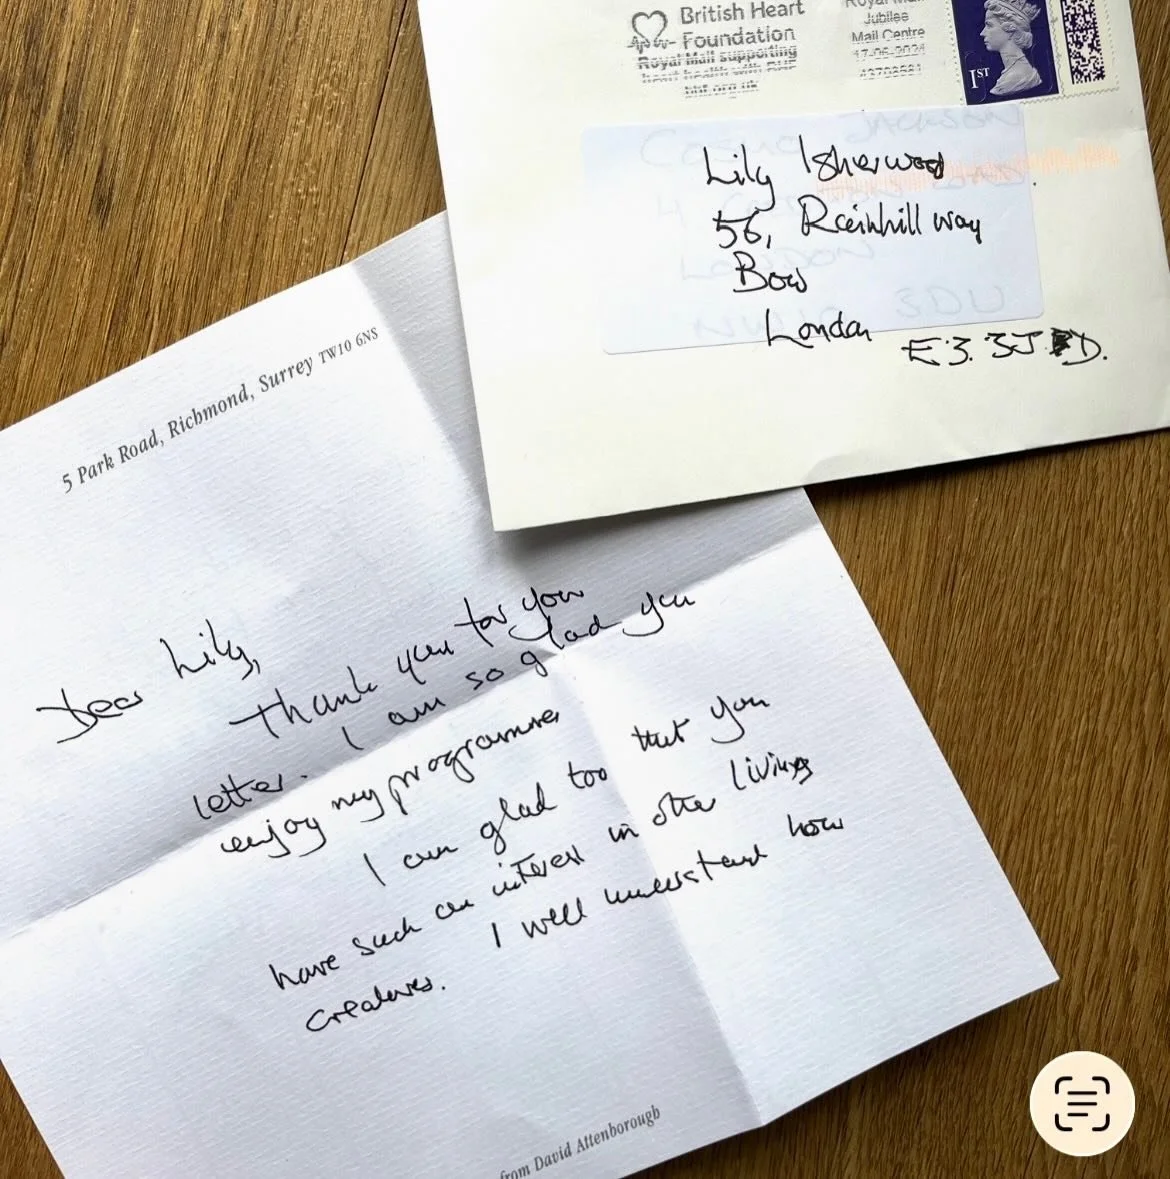 British Heart
Foundation
Royal Mail supporting
heart health with BHF
bhf.org.uk
Royal Mail
Jubilee
Mail Centre
17-06-2024
1ST
JACKSON
LONDON
Lily Isherwood
56, Rainhill way
Bow
London
E3. 3J D.
5 Park Road, Richmond, Surrey TW10 6NS
Dear Lily,
Thank you for your
letter. I am so glad you
enjoy my programmes
I am glad too that you
have such an interest in other living
creatures. I well understand how
from David Attenborough